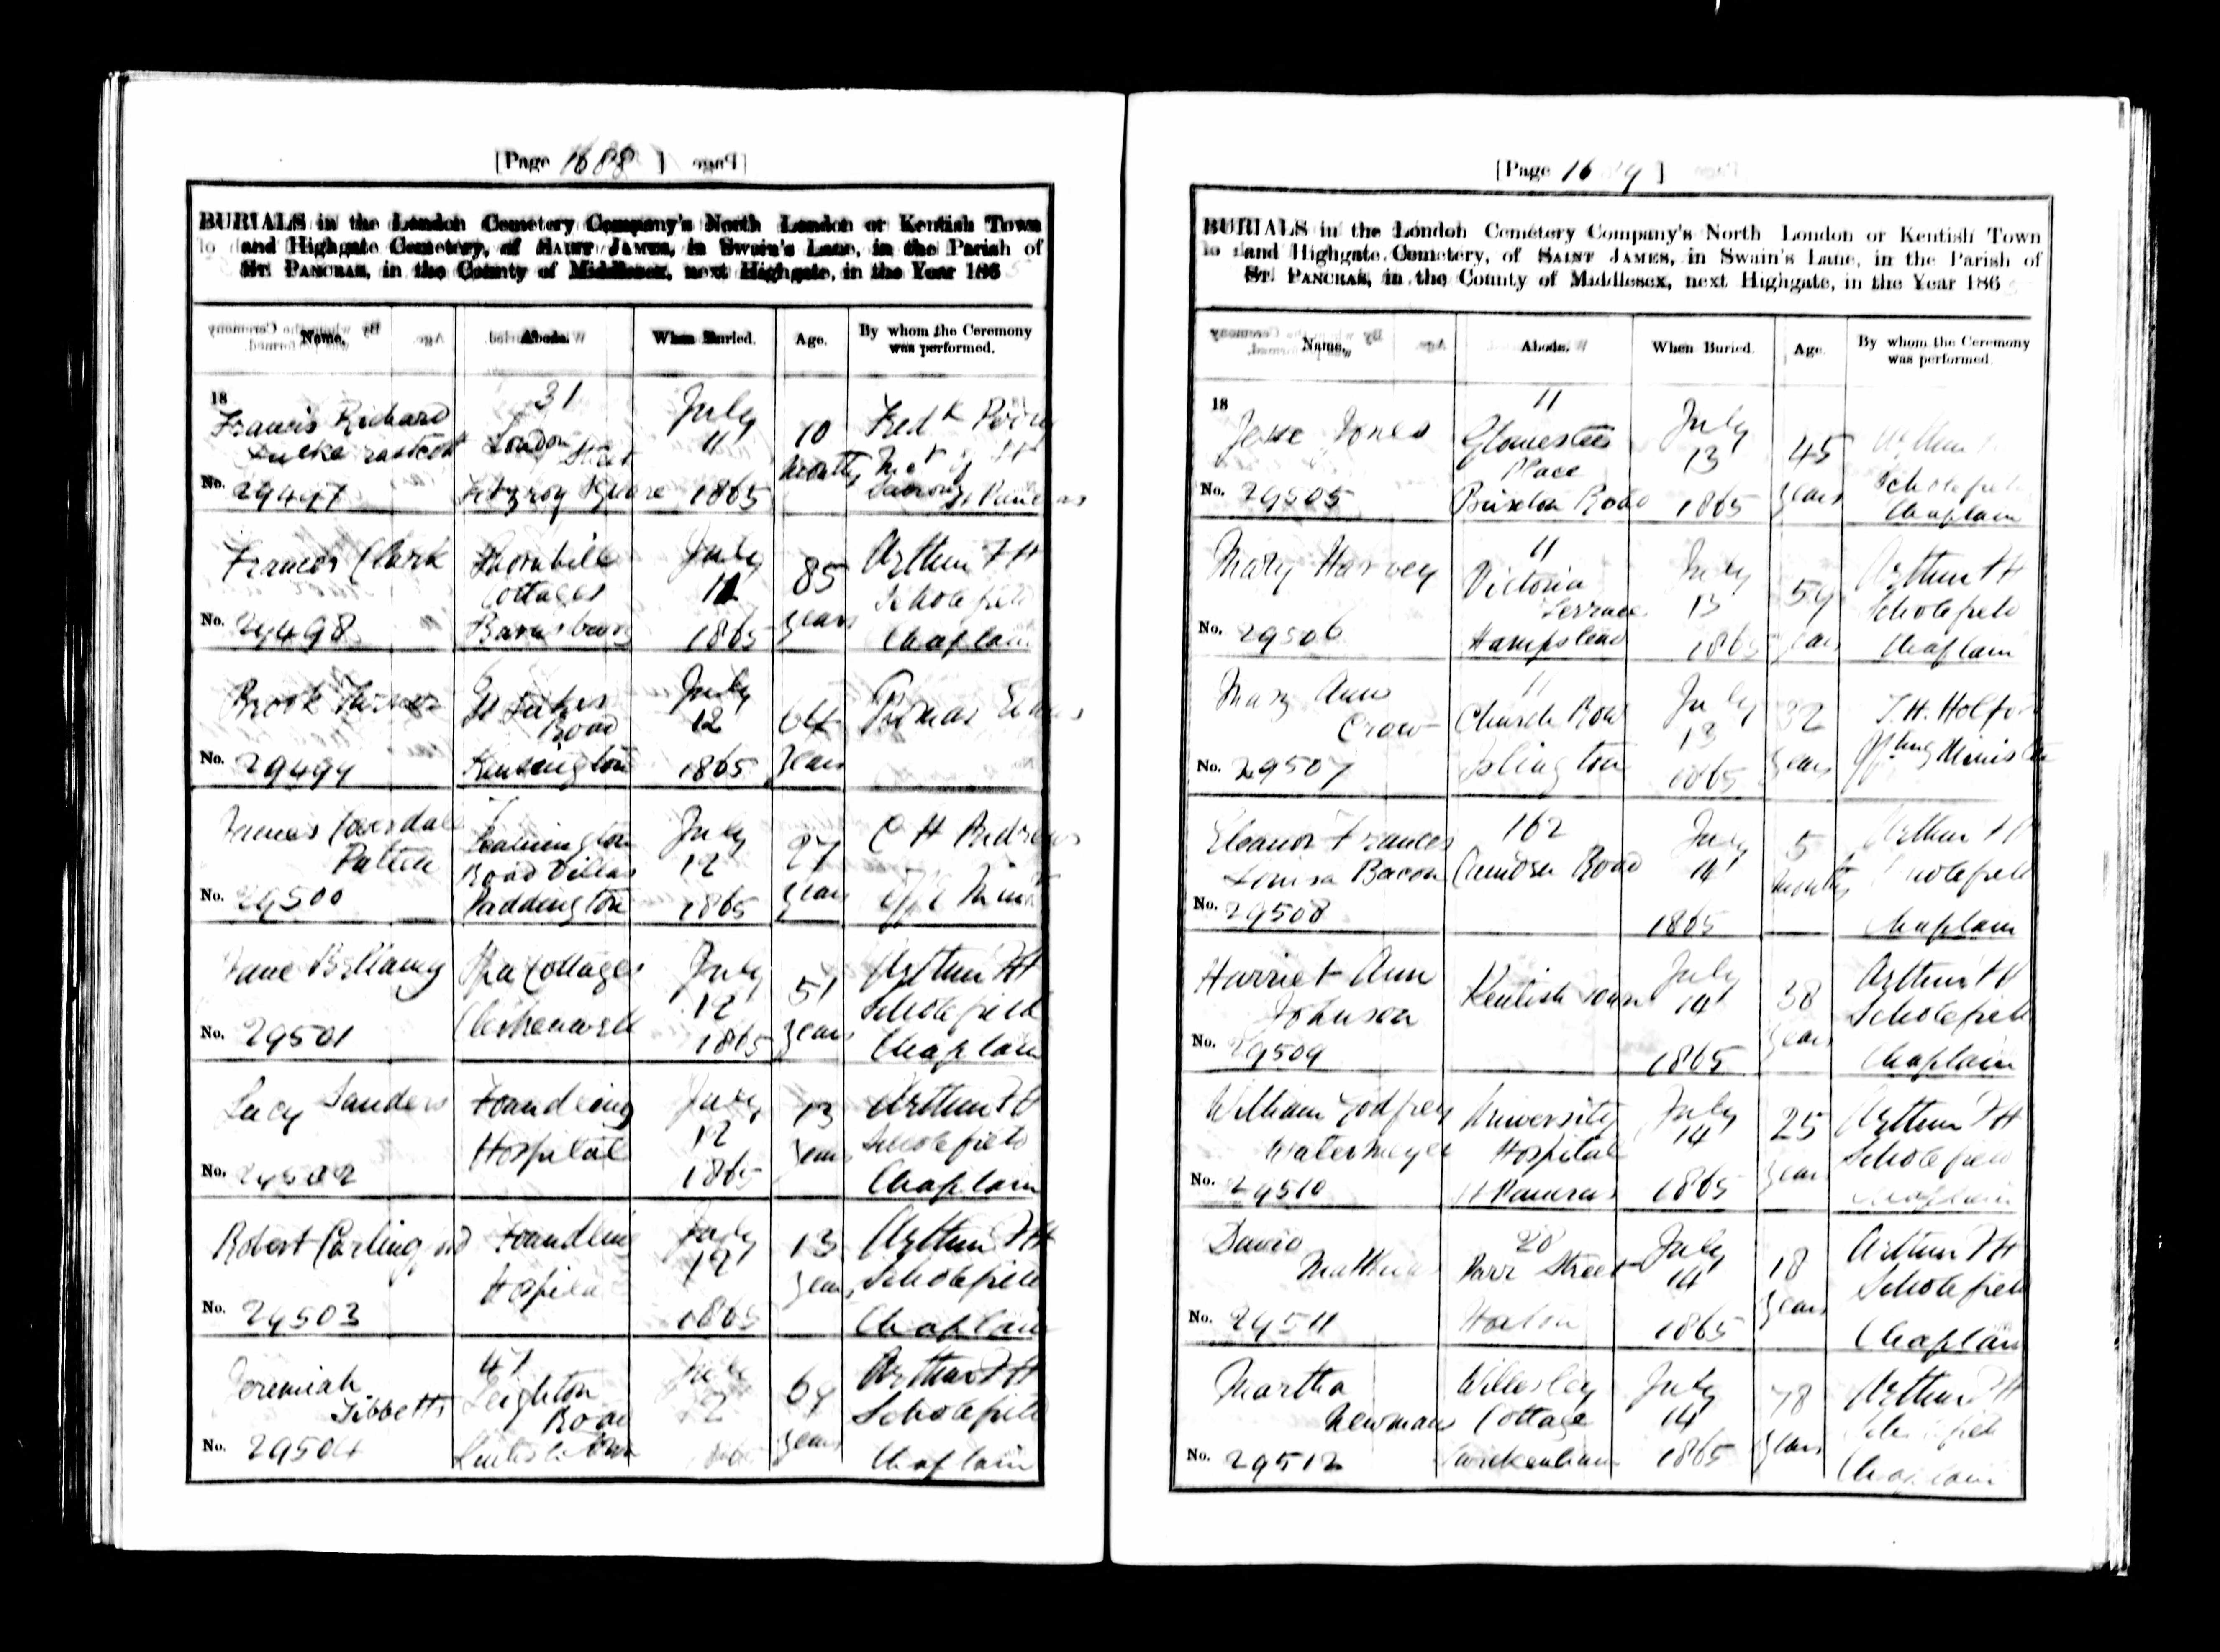 [Page 1688]
BURIALS in the London Cemetery Company's North London or Kentish Town
and Highgate Cemetery, of SAINT JAMES, in Swain's Lane, in the Parish of
ST. PANCRAS, in the County of Middlesex, next Highgate, in the Year 186
Name. Abode. When Buried. Age. By whom the Ceremony
was performed.
18
Francis Richard 31 July 10 Fredk
London Street 11 months
No. 29497 Fitzroy Square 1865 St Pancras
Frances Clark Thornhill July 85 Arthur F H
Cottages 11 years Scholefield
No. 29498 Barnsbury 1865 Chaplain
Brook 6 July 64 Thomas
St Lukes Road 12 years
No. 29499 Kensington 1865
7 July 27 C H Andrews
Patten Leamington 12 years
Road Villas
No. 29500 Paddington 1865
Jane Bellamy Spa Cottages July 51 Arthur F H
12 years Scholefield
No. 29501 Clerkenwell 1865 Chaplain
Lucy Sanders Foundling July 13 Arthur F H
Hospital 12 years Scholefield
No. 29502 1865 Chaplain
Robert Carlingford Foundling July 13 Arthur F H
Hospital 12 years Scholefield
No. 29503 1865 Chaplain
Jeremiah 41 July 69 Arthur F H
Tibbetts Leighton 12 years Scholefield
Road
No. 29504 Kentish Town 1865 Chaplain
[Page 1689]
BURIALS in the London Cemetery Company's North London or Kentish Town
and Highgate Cemetery, of SAINT JAMES, in Swain's Lane, in the Parish of
ST. PANCRAS, in the County of Middlesex, next Highgate, in the Year 186
Name. Abode. When Buried. Age. By whom the Ceremony
was performed.
18
Jesse Jones 11 July 45 Arthur
Gloucester 13 years Scholefield
Place
No. 29505 Brixton Road 1865 Chaplain
Mary Harvey 11 July 59 Arthur F H
Victoria 13 years Scholefield
Terrace
No. 29506 Hampstead 1865 Chaplain
Mary Ann 11 July 32 T. H. Holford
Crow Church Row 13 years Offctng Minister
No. 29507 Islington 1865
Eleanor Frances 162 July 5 Arthur F H
Louisa Bacon Camden Road 14 months Scholefield
No. 29508 1865 Chaplain
Harriet Ann Kentish Town July 38 Arthur F H
Johnson 14 years Scholefield
No. 29509 1865 Chaplain
William Godfrey University July 25 Arthur F H
Watermeyer Hospital 14 years Scholefield
No. 29510 St Pancras 1865 Chaplain
David 28 July 18 Arthur F H
Matthews Parr Street 14 years Scholefield
No. 29511 Hoxton 1865 Chaplain
Martha Willesley July 78 Arthur F H
Newman Cottage 14 years Scholefield
No. 29512 Twickenham 1865 Chaplain